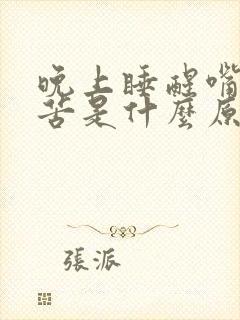 晚上睡醒嘴
苦是什麼原
張派